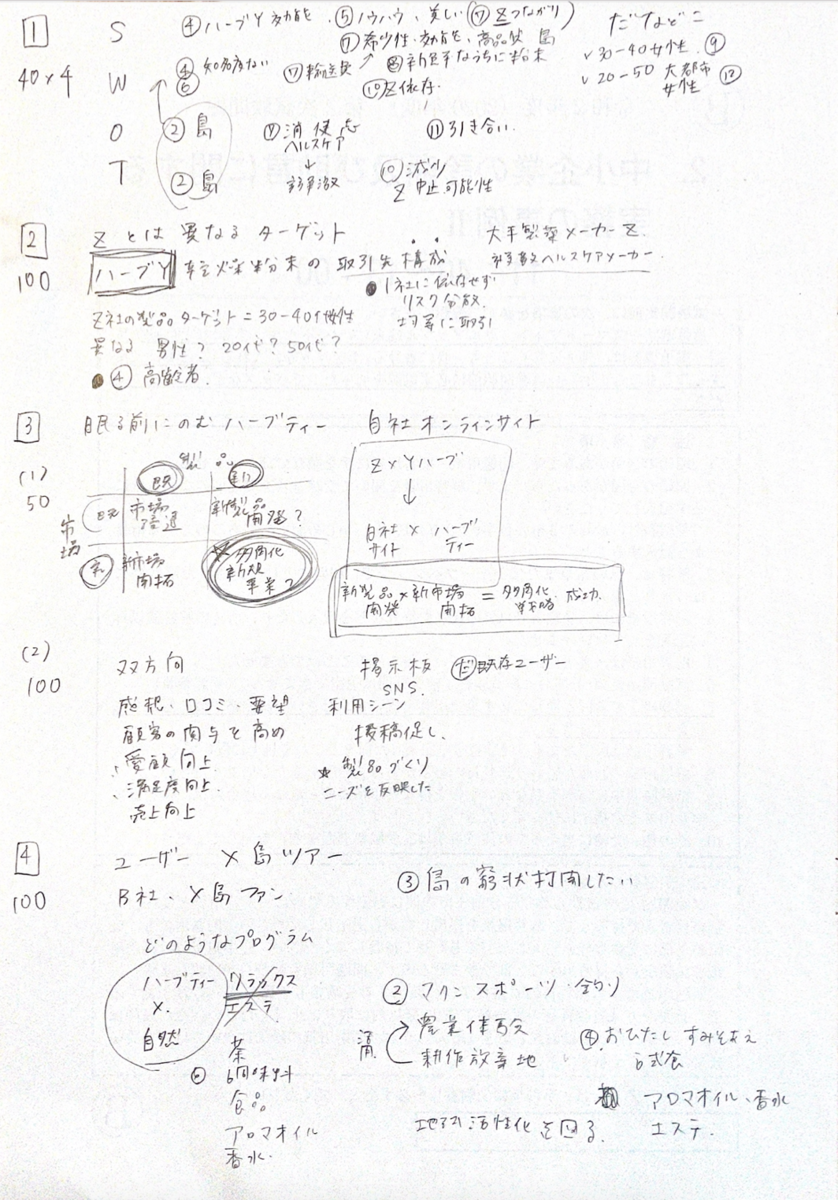 1 S ④ハーブY 効能 ⑤ノウハウ、美しい(⑦Zつながり) だなどこ
⑦希少性・効能、商品性 島 ✓30-40女性 ⑨
40×4 W ④知名度ない ⑦輸送費 ⑧新芽のうちに粉末 ✓20-50 大都市女性 ⑫
⑥ ⑩Z依存
O ②島 ⑨消 ヘルスケア ⑪引き合い
↓
T ②島 競争激 ⑩減少 Z 中止可能性
2 Zとは異なるターゲット 大手製薬メーカーZ
100 ハーブY 乾燥粉末の取引先構成 ヘルスケアメーカー
●1社に依存せず
リスク分散
均等に取引
Z社の製品ターゲット=30-40代女性
異なる 男性? 20代? 50代?
●④ 高齢者
3 眠る前にのむハーブティー 自社オンラインサイト
(1) 製品 Z×Yハーブ
50 既 新 ↓
市場 既 市場浸透 新製品開発? 自社サイト × ハーブティー
新 新市場開拓 多角化 新規事業? 新製品開発×新市場開拓=多角化戦略 成功
(2) 双方向 掲示板 だ既存ユーザー
100 SNS
感想、口コミ・要望 利用シーン
顧客の関与を高め 投稿促し
愛顧向上 ★製品づくり
満足度向上 ニーズを反映した
売上向上
4 ユーザー X島ツアー
③島の窮状打開したい
100 B社、X島ファン
どのようなプログラム
ハーブティー リラックス
× エステ ②マリンスポーツ・釣り
自然 農業体験 ④おひたし すみそあえ
茶 活用 耕作放棄地 試食
⑥ 調味料
食品 アロマオイル、香水
アロマオイル 地域活性化を図る エステ
香水